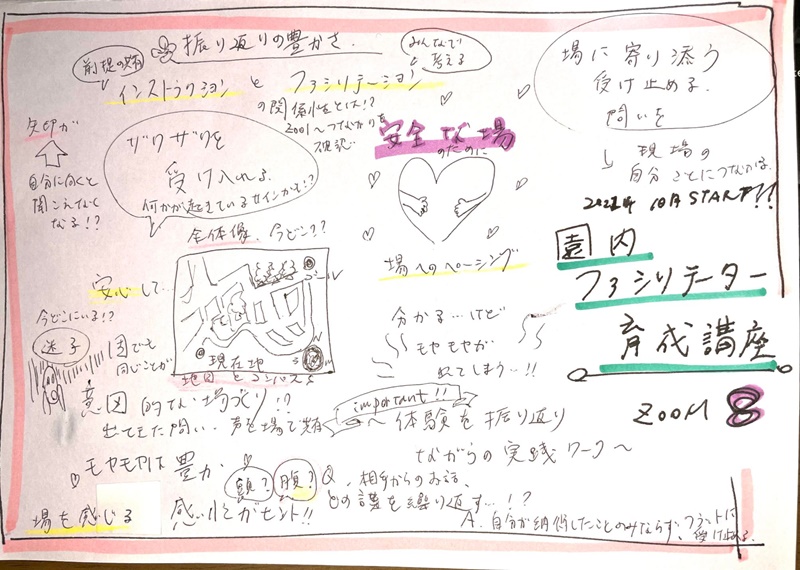 振り返りの豊かさ
前提の共有
みんなで
考える
インストラクション と ファシリテーション
の関係性とは!?
ZOOM〜つながりを
矢印が
自分に向くと
聞こえなく
なる!?
ザワザワを
受け入れる
何かが起きているサインかも!?
安全な場
のために
場に寄り添う
受け止める
問いを
現場の
自分ごとにつなげる
10月START!!
園内
ファシリテーター
育成講座
ZOOM 8
全体像、今どこ??
ゴール
現在地
地図とコンパス
場へのペーシング
安心して…
今どこにいる!?
迷子
園でも
同じことが
分かる…けど
モヤモヤが
れてしまう…!!
意図的な場づくり!?
出てきた問い、声を場で共有
important!!
〜体験を振り返り
ながらの実践ワーク〜
モヤモヤは豊か
頭? 腹?
Q、相手からのお話、
どの議を繰り返す…!?
場を感じる
感性がホント!!
A、自分が納得したことのみならず、フラットに
受け止める